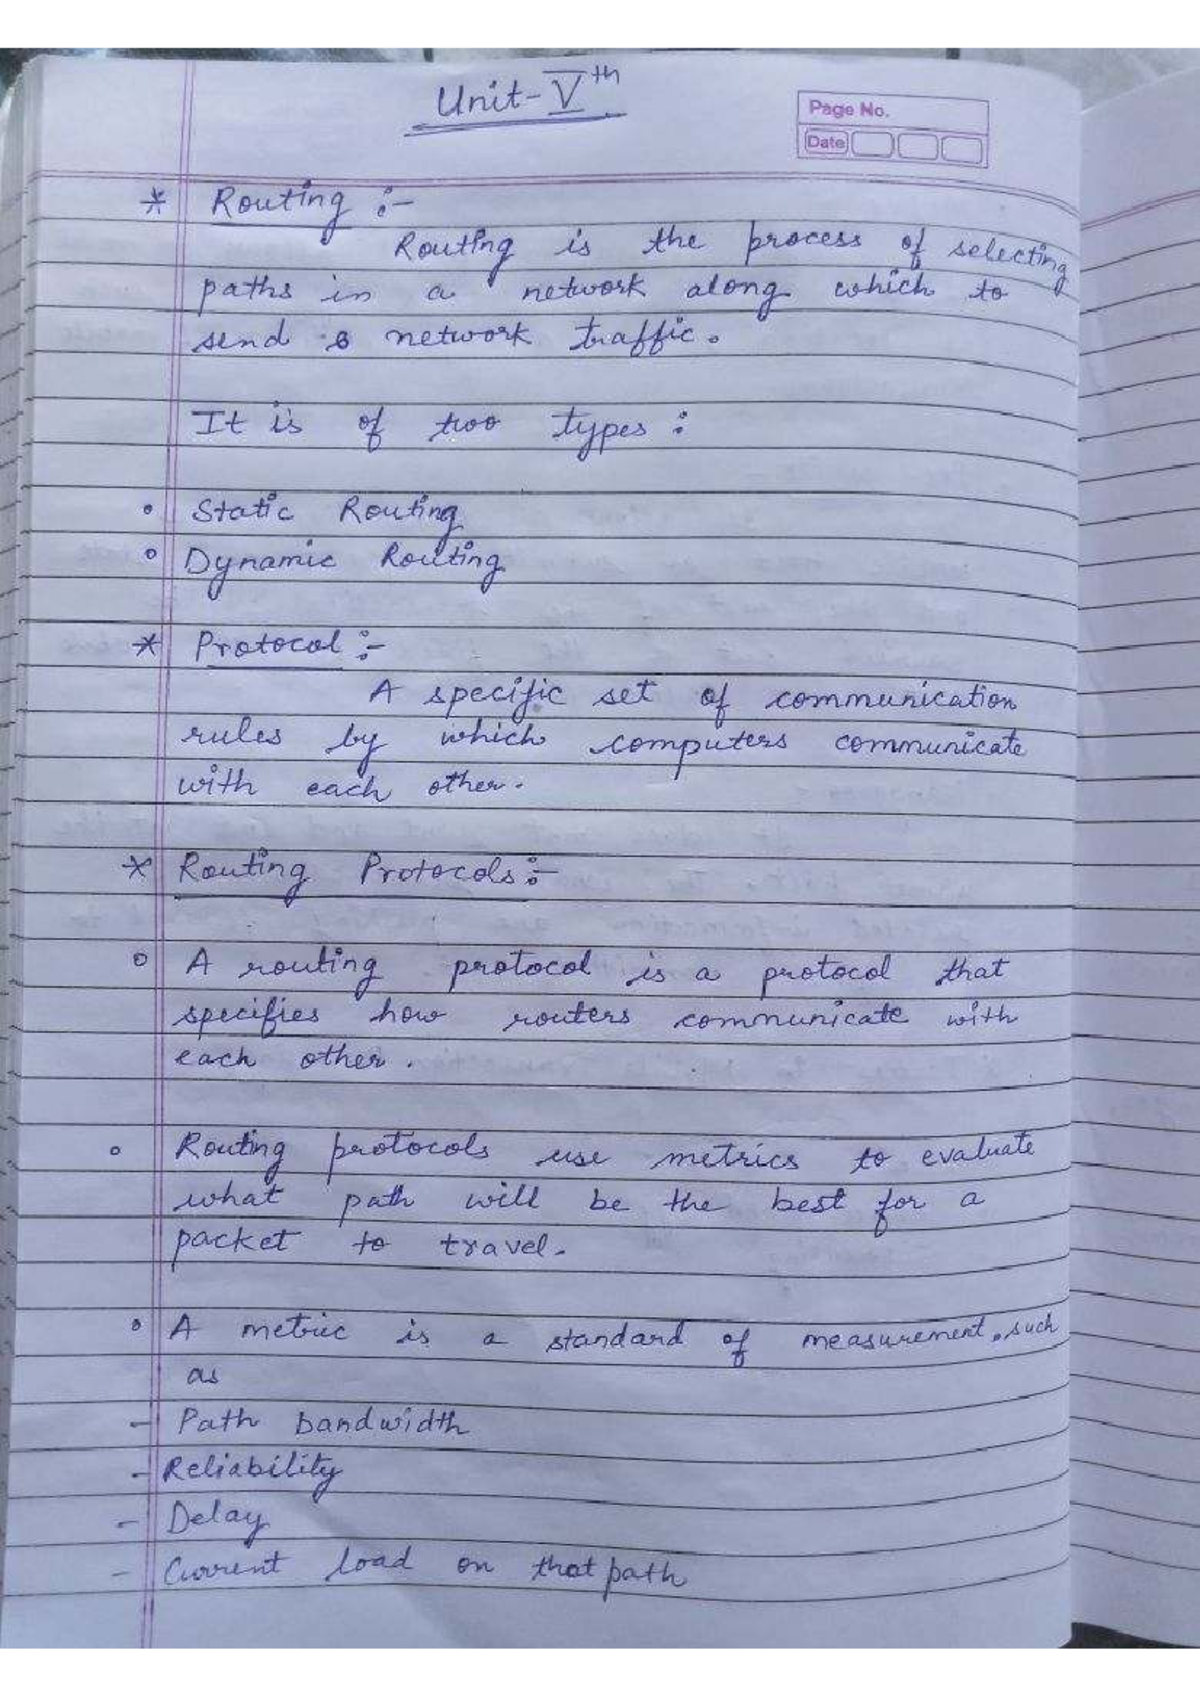 Unit-Vth
Page No.
Date
* Routing :-
Routing is the process of selecting
paths in a network along which to
send network traffic.
It is of two types :
• Static Routing
• Dynamic Routing
* Protocol :-
A specific set of communication
rules by which computers communicate
with each other.
* Routing Protocols :-
• A routing protocol is a protocol that
specifies how routers communicate with
each other.
• Routing protocols use metrics to evaluate
what path will be the best for a
packet to travel.
• A metric is a standard of measurement, such
as
- Path bandwidth
- Reliability
- Delay
- Current load on that path